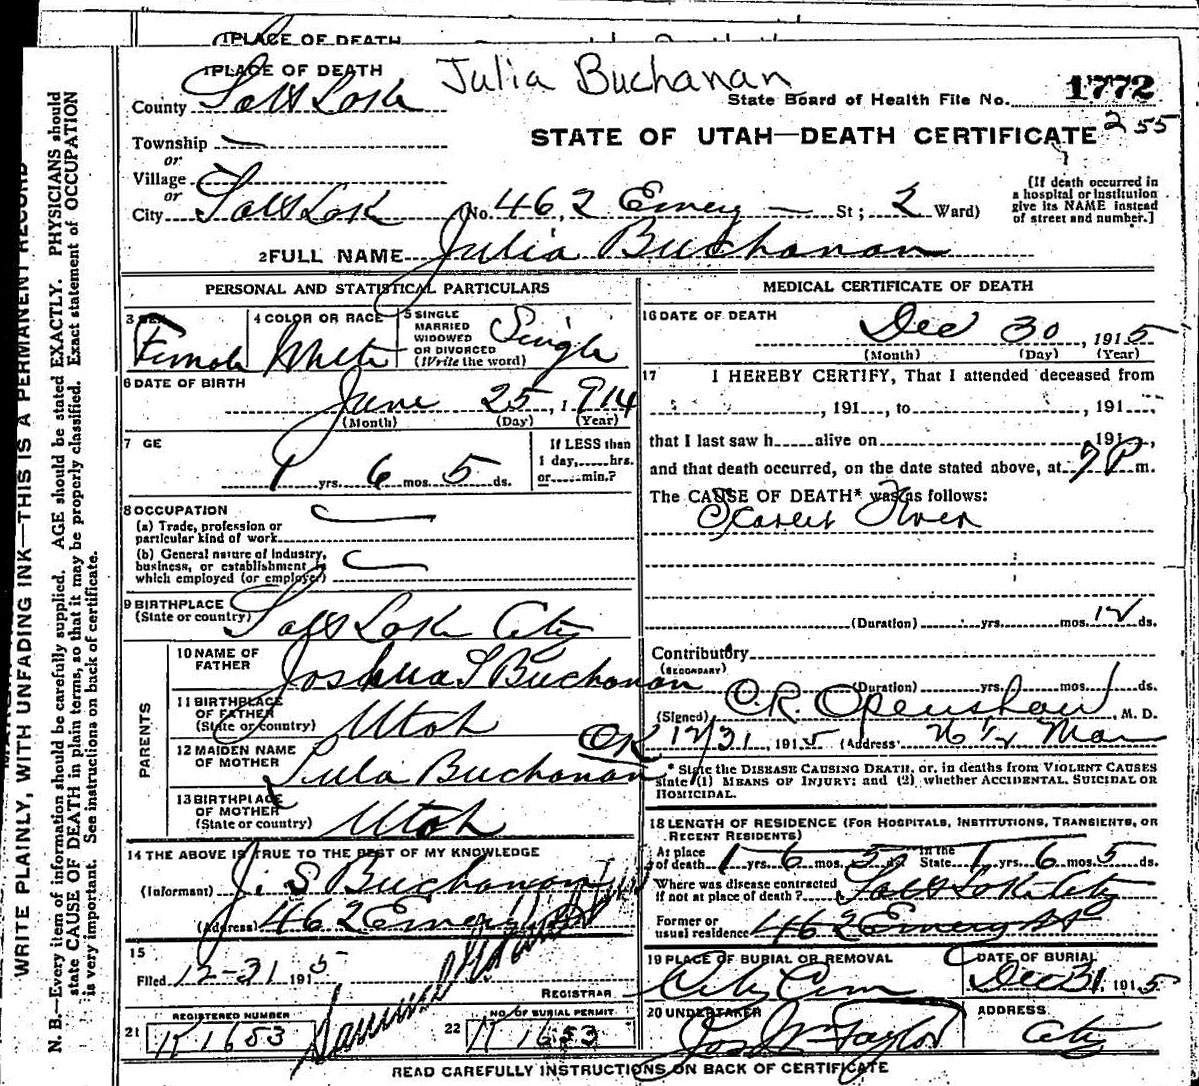 PLACE OF DEATH
1 PLACE OF DEATH
Julia Buchanan
County Salt Lake
State Board of Health File No. 1772
255
STATE OF UTAH—DEATH CERTIFICATE
Township
or
Village
or
City Salt Lake No. 462 Emery St; 2 Ward)
[If death occurred in
a hospital or institution
give its NAME instead
of street and number.]
2 FULL NAME Julia Buchanan
PERSONAL AND STATISTICAL PARTICULARS
3 SEX Female
4 COLOR OR RACE White
5 SINGLE
MARRIED
WIDOWED
OR DIVORCED
(Write the word)
Single
6 DATE OF BIRTH
June 25, 1914
(Month) (Day) (Year)
7 GE
1 yrs. 6 mos. 5 ds.
If LESS than
1 day, hrs.
or min.?
8 OCCUPATION
(a) Trade, profession or
particular kind of work
(b) General nature of industry,
business, or establishment in
which employed (or employer)
9 BIRTHPLACE
(State or country) Salt Lake City
PARENTS
10 NAME OF
FATHER Joshua S Buchanan
11 BIRTHPLACE
OF FATHER
(State or country) Utah
12 MAIDEN NAME
OF MOTHER Lula Buchanan
OK
13 BIRTHPLACE
OF MOTHER
(State or country) Utah
14 THE ABOVE IS TRUE TO THE BEST OF MY KNOWLEDGE
(Informant) J. S Buchanan
(Address) 462 Emery
15
Filed 12-31 1915
REGISTRAR
21 REGISTERED NUMBER
K 1653
22 NO. OF BURIAL PERMIT
K 1653
MEDICAL CERTIFICATE OF DEATH
16 DATE OF DEATH
Dec 30, 1915
(Month) (Day) (Year)
17 I HEREBY CERTIFY, That I attended deceased from
, 191 , to , 191 ,
that I last saw h alive on 191 ,
and that death occurred, on the date stated above, at 7 P m.
The CAUSE OF DEATH* was as follows:
Scarlet Fever
(Duration) yrs. mos. 12 ds.
Contributory
(SECONDARY)
(Duration) yrs. mos. ds.
(Signed) O.R. Openshaw, M. D.
12/31, 1915 (Address) 76 1/2 Main
* State the DISEASE CAUSING DEATH, or, in deaths from VIOLENT CAUSES
state (1) MEANS OF INJURY; and (2) whether ACCIDENTAL, SUICIDAL OR
HOMICIDAL.
18 LENGTH OF RESIDENCE (FOR HOSPITALS, INSTITUTIONS, TRANSIENTS, OR
RECENT RESIDENTS)
At place
of death 1 yrs. 6 mos. 5 ds. In the
State 1 yrs. 6 mos. 5 ds.
Where was disease contracted
if not at place of death? Salt Lake City
Former or
usual residence 462 Emery St
19 PLACE OF BURIAL OR REMOVAL
City Cem
DATE OF BURIAL
Dec 31, 1915
20 UNDERTAKER
Jos Wm Taylor
ADDRESS
City
READ CAREFULLY INSTRUCTIONS ON BACK OF CERTIFICATE
WRITE PLAINLY, WITH UNFADING INK—THIS IS A PERMANENT RECORD
N. B.—Every item of information should be carefully supplied. AGE should be stated EXACTLY. PHYSICIANS should
state CAUSE OF DEATH in plain terms, so that it may be properly classified. Exact statement of OCCUPATION
is very important. See instructions on back of certificate.